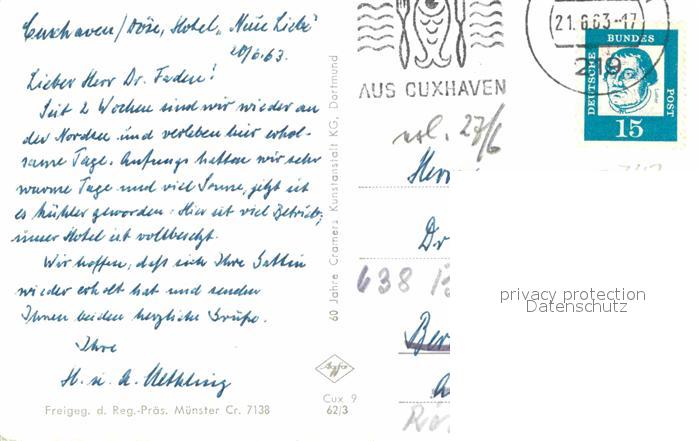 Cuxhaven/Döse, Hotel „Neue Liebe"
20/6.63.
Lieber Herr Dr. Faden!
Seit 2 Wochen sind wir wieder an
der Nordsee und verleben hier erhol-
same Tage. Anfangs hatten wir sehr
warme Tage und viel Sonne, jetzt ist
es kühler geworden. Hier ist viel Betrieb,
unser Hotel ist vollbesetzt.
Wir hoffen, daß sich Ihre Gattin
wieder erholt hat und senden
Ihnen beiden herzliche Grüße.
Ihre
H. u. A.
Freigeg. d. Reg.-Präs. Münster Cr. 7138
60 Jahre Cramers Kunstanstalt KG, Dortmund
Agfa
Cux 9
62/3
AUS CUXHAVEN
21.6.63-17
219
DEUTSCHE
BUNDES
POST
15
27/6
Herr
Dr
638
Ber
privacy protection
Datenschutz